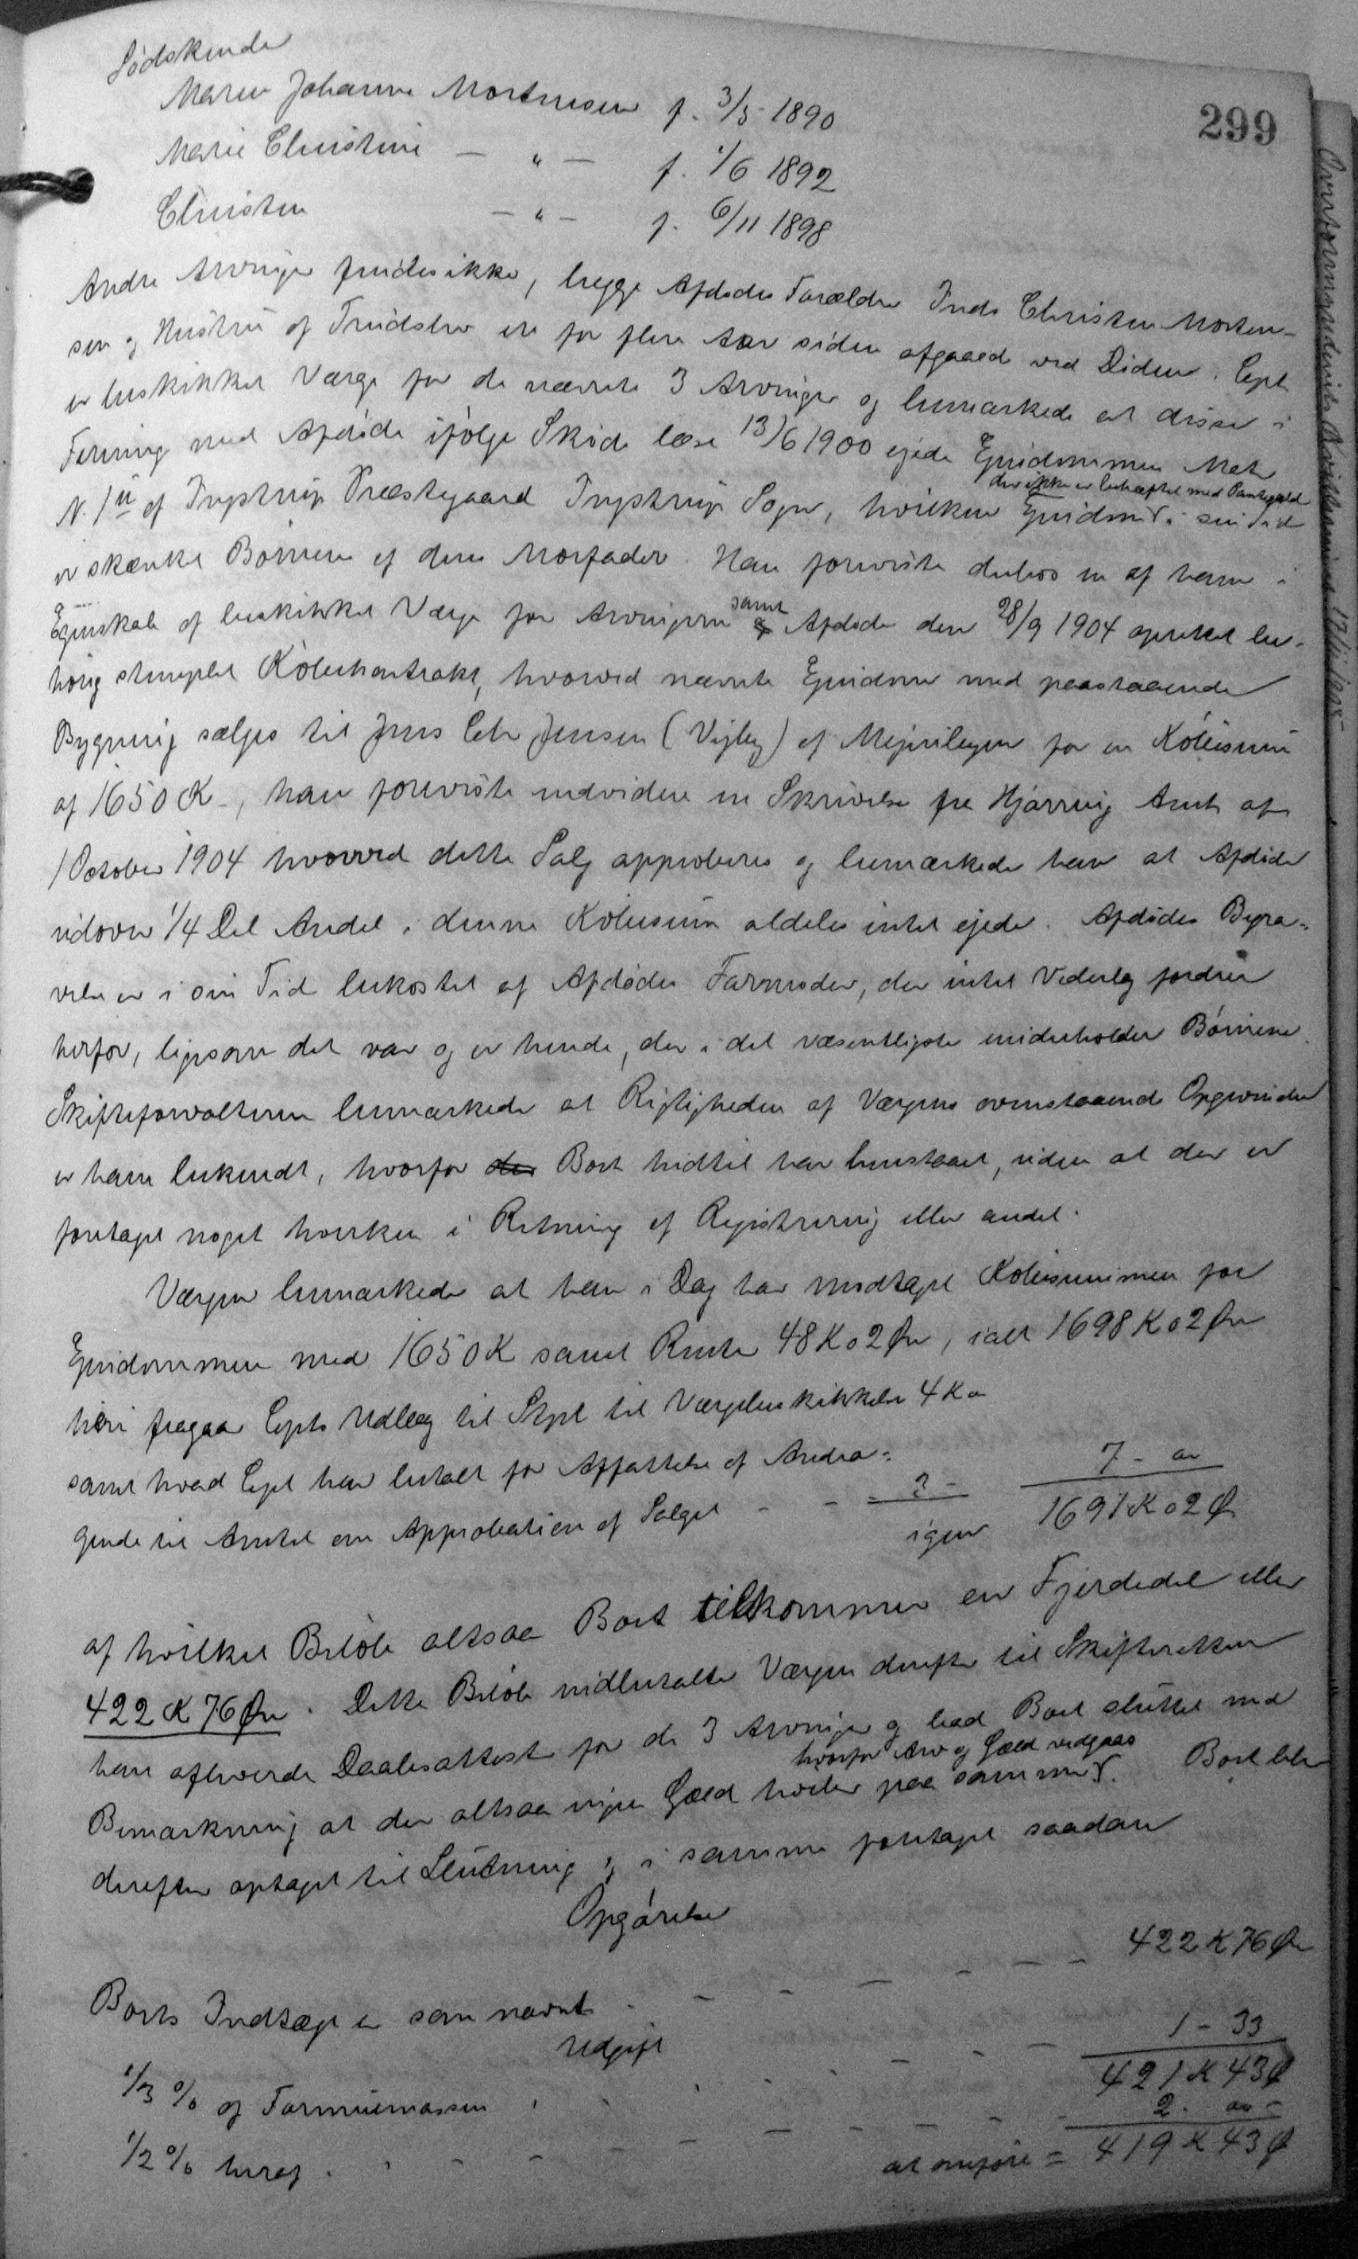 299
Sødskende
Maren Johanne Mortensen f. 3/5 1890
Marie Christine — " — f. 1/6 1892
Christen — " — f. 6/11 1898
Andre Arvinger findes ikke, begge Afdødes Forældre Inds Christen Morten-
sen og Hustru af Trudslev ere for flere Aar siden afgaaed ved Døden. Cpt
er beskikket Værge for de nævnte 3 Arvinger og bemærkede at disse i
Forening med Afdøde ifølge Skøde læst 13/6 1900 ejede Ejendommen Mat
der ikke er behæftet med Pantegæld
N. 1 ü af Ingstrup Præstegaard Ingstrup Sogn, hvilken Ejendom i sin Tid
er skænket Børnene af deres Morfader. Han foreviste derhos en af ham i
Egenskab af beskikket Værge for Arvingerne samt Afdøde den 28/9 1904 oprettet be-
hørig stemplet Købekontrakt, hvorved nævnte Ejendom med paastaaende
Bygning sælges til Jens Chr Jensen (Vejby) af Mejeribyen for en Købesum
af 1650 K -, han foreviste endvidere en Skrivelse fra Hjørring Amt af
1 October 1904 hvorved dette Salg approberes og bemærkede han at Afdøde
udover 1/4 Del Andel i denne Købesum aldeles intet ejede. Afdødes Begra-
velse er i sin Tid bekostet af Afdødes Farmoder, der intet Vederlag fordrer
herfor, ligesom det var og er hende, der i det væsentligste underholder Børnene.
Skifteforvalteren bemærkede at Rigtigheden af Værgens ovenstaaende Opgivender
er ham bekendt, hvorfor der Boet hidtil har henstaaet, uden at der er
foretaget noget hverken i Retning af Registrering eller andet.
Værgen bemærkede at han i Dag har modtaget Købesummen for
Ejendommen med 1650 K samt Rente 48 K 02 Øre, ialt 1698 K 02 Øre
heri fragaar Cpts Udlæg til Stpl til Værgebeskikkelse 4 K "
samt hvad Cpt har betalt for Affattelse af Andra-
gende til Amtet om Approbation af Salget - - 3 - 7 - "
igen 1691 K 02 Ø
af hvilket Beløb altsaa Boet tilkommer en Fjerdedel eller
422 K 76 Øre. Dette Beløb indbetalte Værgen derefter til Skifteretten
han afleverede Daabsattester for de 3 Arvinger og bad Boet sluttet med
hvorfor Arv og Gæld vedgaas
Bemærkning at der altsaa ingen Gæld hviler paa samme. Boet blev
derefter optaget til Slutning og i samme foretaget saadan
Opgørelse
Boets Indtægt er som nævnt - - - - - - 422 K 76 Øre
Udgift
1/3 % af Formuemassen - - - - - 1 - 33
421 K 43 Ø
1/2 % heraf - - - - - - 2 - " -
at overføre = 419 K 43 Ø